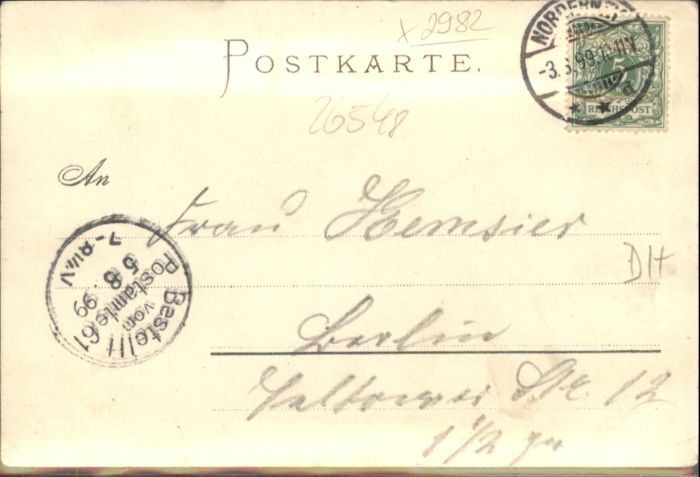 x 2982
POSTKARTE.
NORDERN
-3.8.99.
5
REICHSPOST
26548
An
Frau Hemsier
Bestellt
vom
Postamte 61
5 8 99
7-8½V
DH
Berlin
Teltower Str. 12
1 1/2